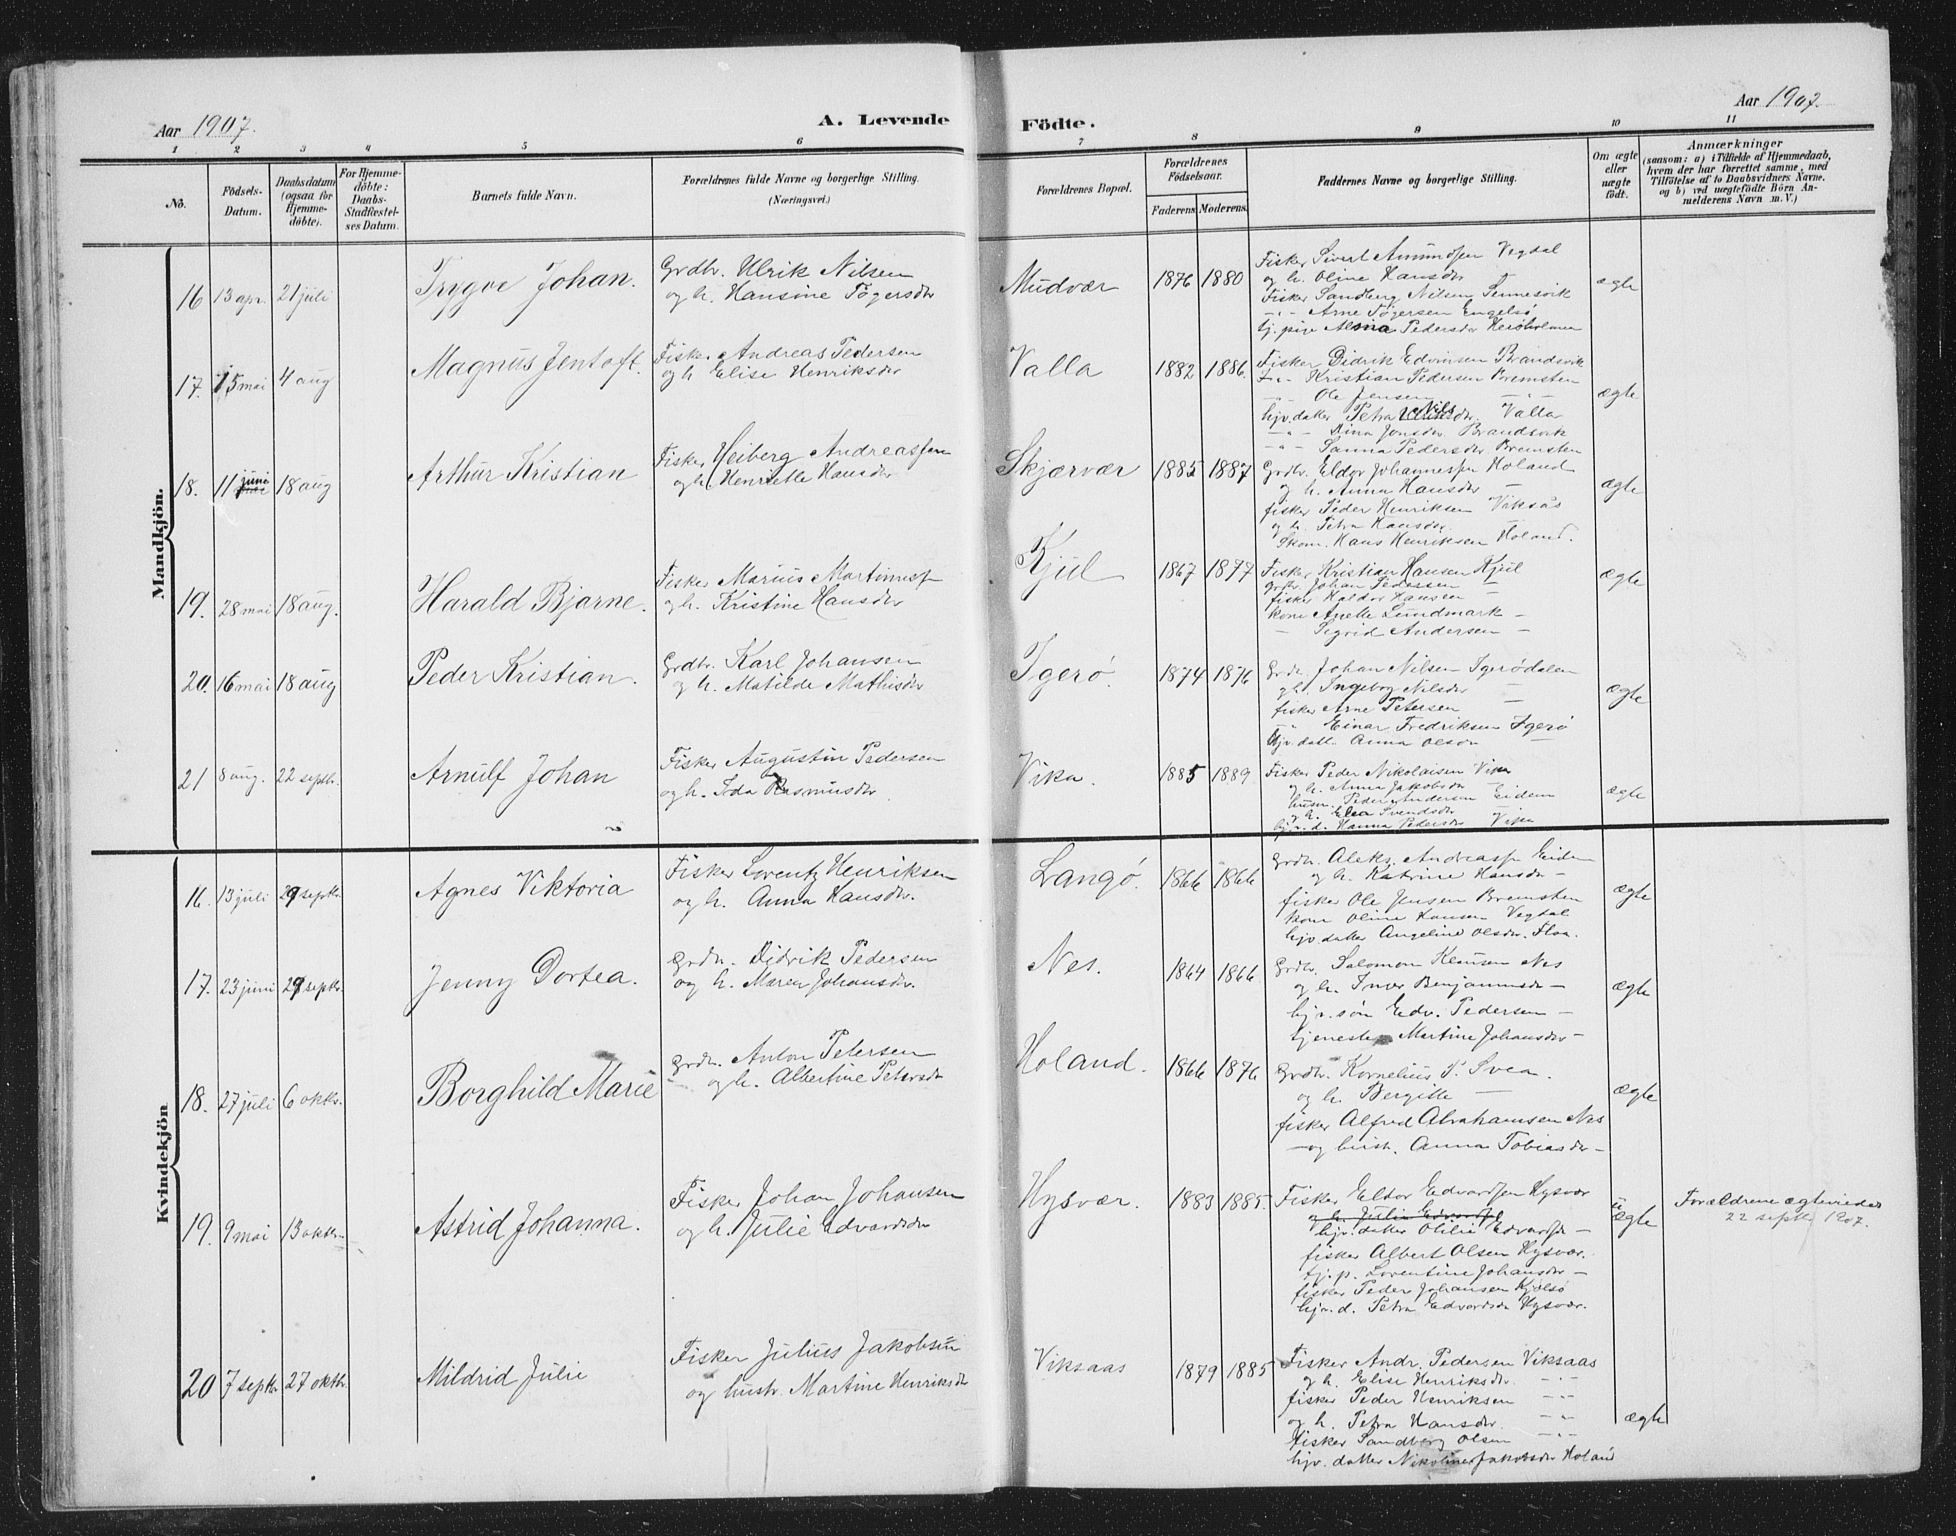 Aar 1907.
A. Levende
Födte.
Aar 1907.
1 2 3 4 5 6 7 8 9 10 11
No.
Födsels-
Datum.
Daabsdatum
(ogsaa for
Hjemme-
döbte).
For Hjemme-
döbte:
Daabs-
Stadfæstel-
ses Datum.
Barnets fulde Navn.
Forældrenes fulde Navne og borgerlige Stilling.
(Næringsvei.)
Forældrenes Bopæl.
Forældrenes
Födselsaar.
Faderens.
Moderens.
Faddernes Navne og borgerlige Stilling.
Om ægte
eller
uægte
födt.
Anmærkninger
(saasom: a) i Tilfælde af Hjemmedaab,
hvem der har forrettet samme, med
Tilföielse af to Daabsvidners Navne,
og b) ved uægtefödte Börn An-
melderens Navn m. V.)
Mandkjön.
16 13 apr. 21 juli Trygve Johan. Grdbr. Ulrik Nilsen
og h. Hansine Tögersdr
Mudvær 1876 1880 ægte
Fisker Sivert Amundsen Vegdal
og h. Oline Hansdr
Fisker Sandberg Nilsen Tennesvik
-"- Arne Tögersen Engelsö
tj. pige Pedersdr Heröholmen
17. 15 mai 4 aug Magnus Jentoft. Fisk. Andreas Pedersen
og h Elise Henriksdr
Valla 1882 1886. ægte
Fisker Didrik Edvinsen Brandsvik
-"- Kristian Pedersen Bremsten
-"- Ole Jensen -"-
hjv. datter Petra Nilsdr. Valla
-"- Dina Jonsdr Brandsvik
-"- Sanna Pedersdr Bremsten
18. 11 juni 18 aug Arthur Kristian Fisker Heiberg Andreassen
og h. Henriette Hansdr
Skjærvær 1885 1887 ægte
Grdbr. Eldor Johannessen Holand
og h. Anna Hansdr -
fisker Peder Henriksen Viksås
og h. Petra Hansdr.
Skom. Hans Henriksen Holand.
19. 28 mai 18 aug. Harald Bjarne. Fisker Marius Martinus
og h. Kristine Hansdr
Kjul 1867 1877 ægte
Fisker Kristian Hansen Kjul
grdbr Johan Pedersen -
fisker Haldor Hansen -
kone Anette Lundmark -
- Sigrid Andersen -
20. 16 mai 18 aug Peder Kristian. Grdbr. Karl Johansen
og h. Matilde Mathisdr
Igerö. 1874 1876 ægte
Grdbr Johan Nilsen Igerödalen
og h. Ingeborg Nilsdr -
fisker Arne Petersen
-"- Einar Fredriksen Igerö
hjv. datt. Anna Olsdr -
21 8 aug. 22 septb. Arnulf Johan Fisker Augustin Pedersen
og h. Ida Rasmusdr
Vika. 1885 1889. ægte
Fisker Peder Nikolaisen Vika
og h. Anna Jakobsdr
husm. Peder Andersen Eidem
og h. Elea Svendsdr
hjv. d. Hanna Pedersdr Vika
Kvindekjön
16. 13 juli 29 septbr. Agnes Viktoria Fisker Lorentz Henriksen
og h. Anna Hansdr.
Langö. 1866 1866 ægte
Grdbr. Aleks. Andreass Eidem
og h. Katrine Hansdr -
fisker Ole Jensen Bremsten
kone Oline Hansen Vegdal
hjv. datter Angeline Olsdr. Floa.
17. 23 juni 29 septbr. Jenny Dortea. Grdbr. Didrik Pedersen
og h. Maren Johansdr.
Nes. 1864 1866 ægte
Grdbr. Salomon Klausen Nes
og h. Inger Benjaminsdr -
hjv. søn Edv. Pedersen -
tjeneste Martine Johansdr -
18. 27 juli 6 oktbr. Borghild Marie Grdbr. Anton Petersen
og h. Albertine Petersdr
Holand. 1866 1876 ægte
Grdbr. Kornelius P. Svea.
og h. Bergitte -
fisker Alfred Abrahamsen Nes
- og hustr. Anna Tobiasdr -
19. 9 mai 13 oktbr. Astrid Johanna. Fisker Johan Johansen
og h. Julie Edvardsdr
Hysvær. 1883 1885. uægte
Fisker Eldor Edvardsen Hysvær
og h. Julie Edvardsd
hjv. datter Otilie Edvardsdr -
fisker Albert Olsen Hysvær.
tj. p. Lorentine Johansdr -
fisker Peder Johansen Kjölsö
hjv. d. Petra Edvardsdr Hysvær.
Forældrene ægteviedes
22 septbr 1907.
20 7 septbr 27 oktbr. Mildrid Julie Fisker Julius Jakobsen
og hustr. Martine Henriksdr
Viksaas 1879 1885 ægte
Fisker Andr. Pedersen Viksaas
og h. Elise Henriksdr. -"-
fisker Peder Henriksen -"-
og h. Petra Hansdr. -"-
Fisker Sandberg Olsen -"-
hjv. datter Nikoline Jakobsdr Holand